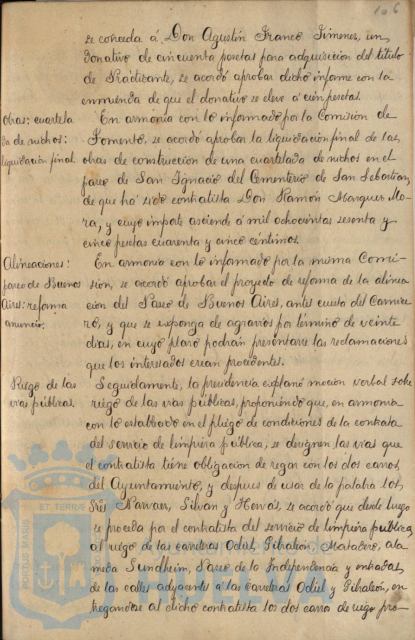 106
se conceda á Don Agustín Franco Jimenez, un
donativo de cincuenta pesetas para adquisicion del título
de Practicante, se acordó aprobar dicho informe con la
enmienda de que el donativo se eleve á cien pesetas.
Obras; cuartela
da de nichos:
liquidación final.
En armonia con lo informado por la Comisión de
Fomento, se acordó aprobar la liquidación final de las
obras de construccion de una cuartelada de nichos en el
paseo de San Ignacio del Cementerio de San Sebastian,
de que ha sido contratista Don Ramón Marquez Mo-
ra, y cuyo importe asciende á mil ochocientas sesenta y
cinco pesetas cuarenta y cinco céntimos.
Alineaciones:
paseo de Buenos
Aires: reforma
anuncio.
En armonia con lo informado por la misma Comi-
sión, se acordó aprobar el proyecto de reforma de la alinea
ción del Paseo de Buenos Aires, antes cuesta del Carnice
ro, y que se exponga de agravios por término de veinte
dias, en cuyo plazo podrán presentarse las reclamaciones
que los interesados crean procedentes.
Riego de las
vias públicas.
Seguidamente, la presidencia explanó moción verbal sobre
riego de las vias públicas, proponiendo que, en armonia
con lo establecido en el pliego de condiciones de la contrata
del servicio de limpieza pública, se designen las vias que
el contratista tiene obligacion de regar con los dos carros
del Ayuntamiento, y despues de usar de la palabra los
Sres Narvaez, Silvan y se acordó que desde luego
se proceda por el contratista del servicio de limpieza pública
al riego de las carreteras Odiel, Gibraleón, Matadero, ala
meda Sundheim, Paseo de la Independencia y entradas
de las calles adyacentes á las carreteras Odiel y Gibraleón, en
tregandose al dicho contratista los dos carros de riego pro-
PORTUS MARIS
ET TERRÆ